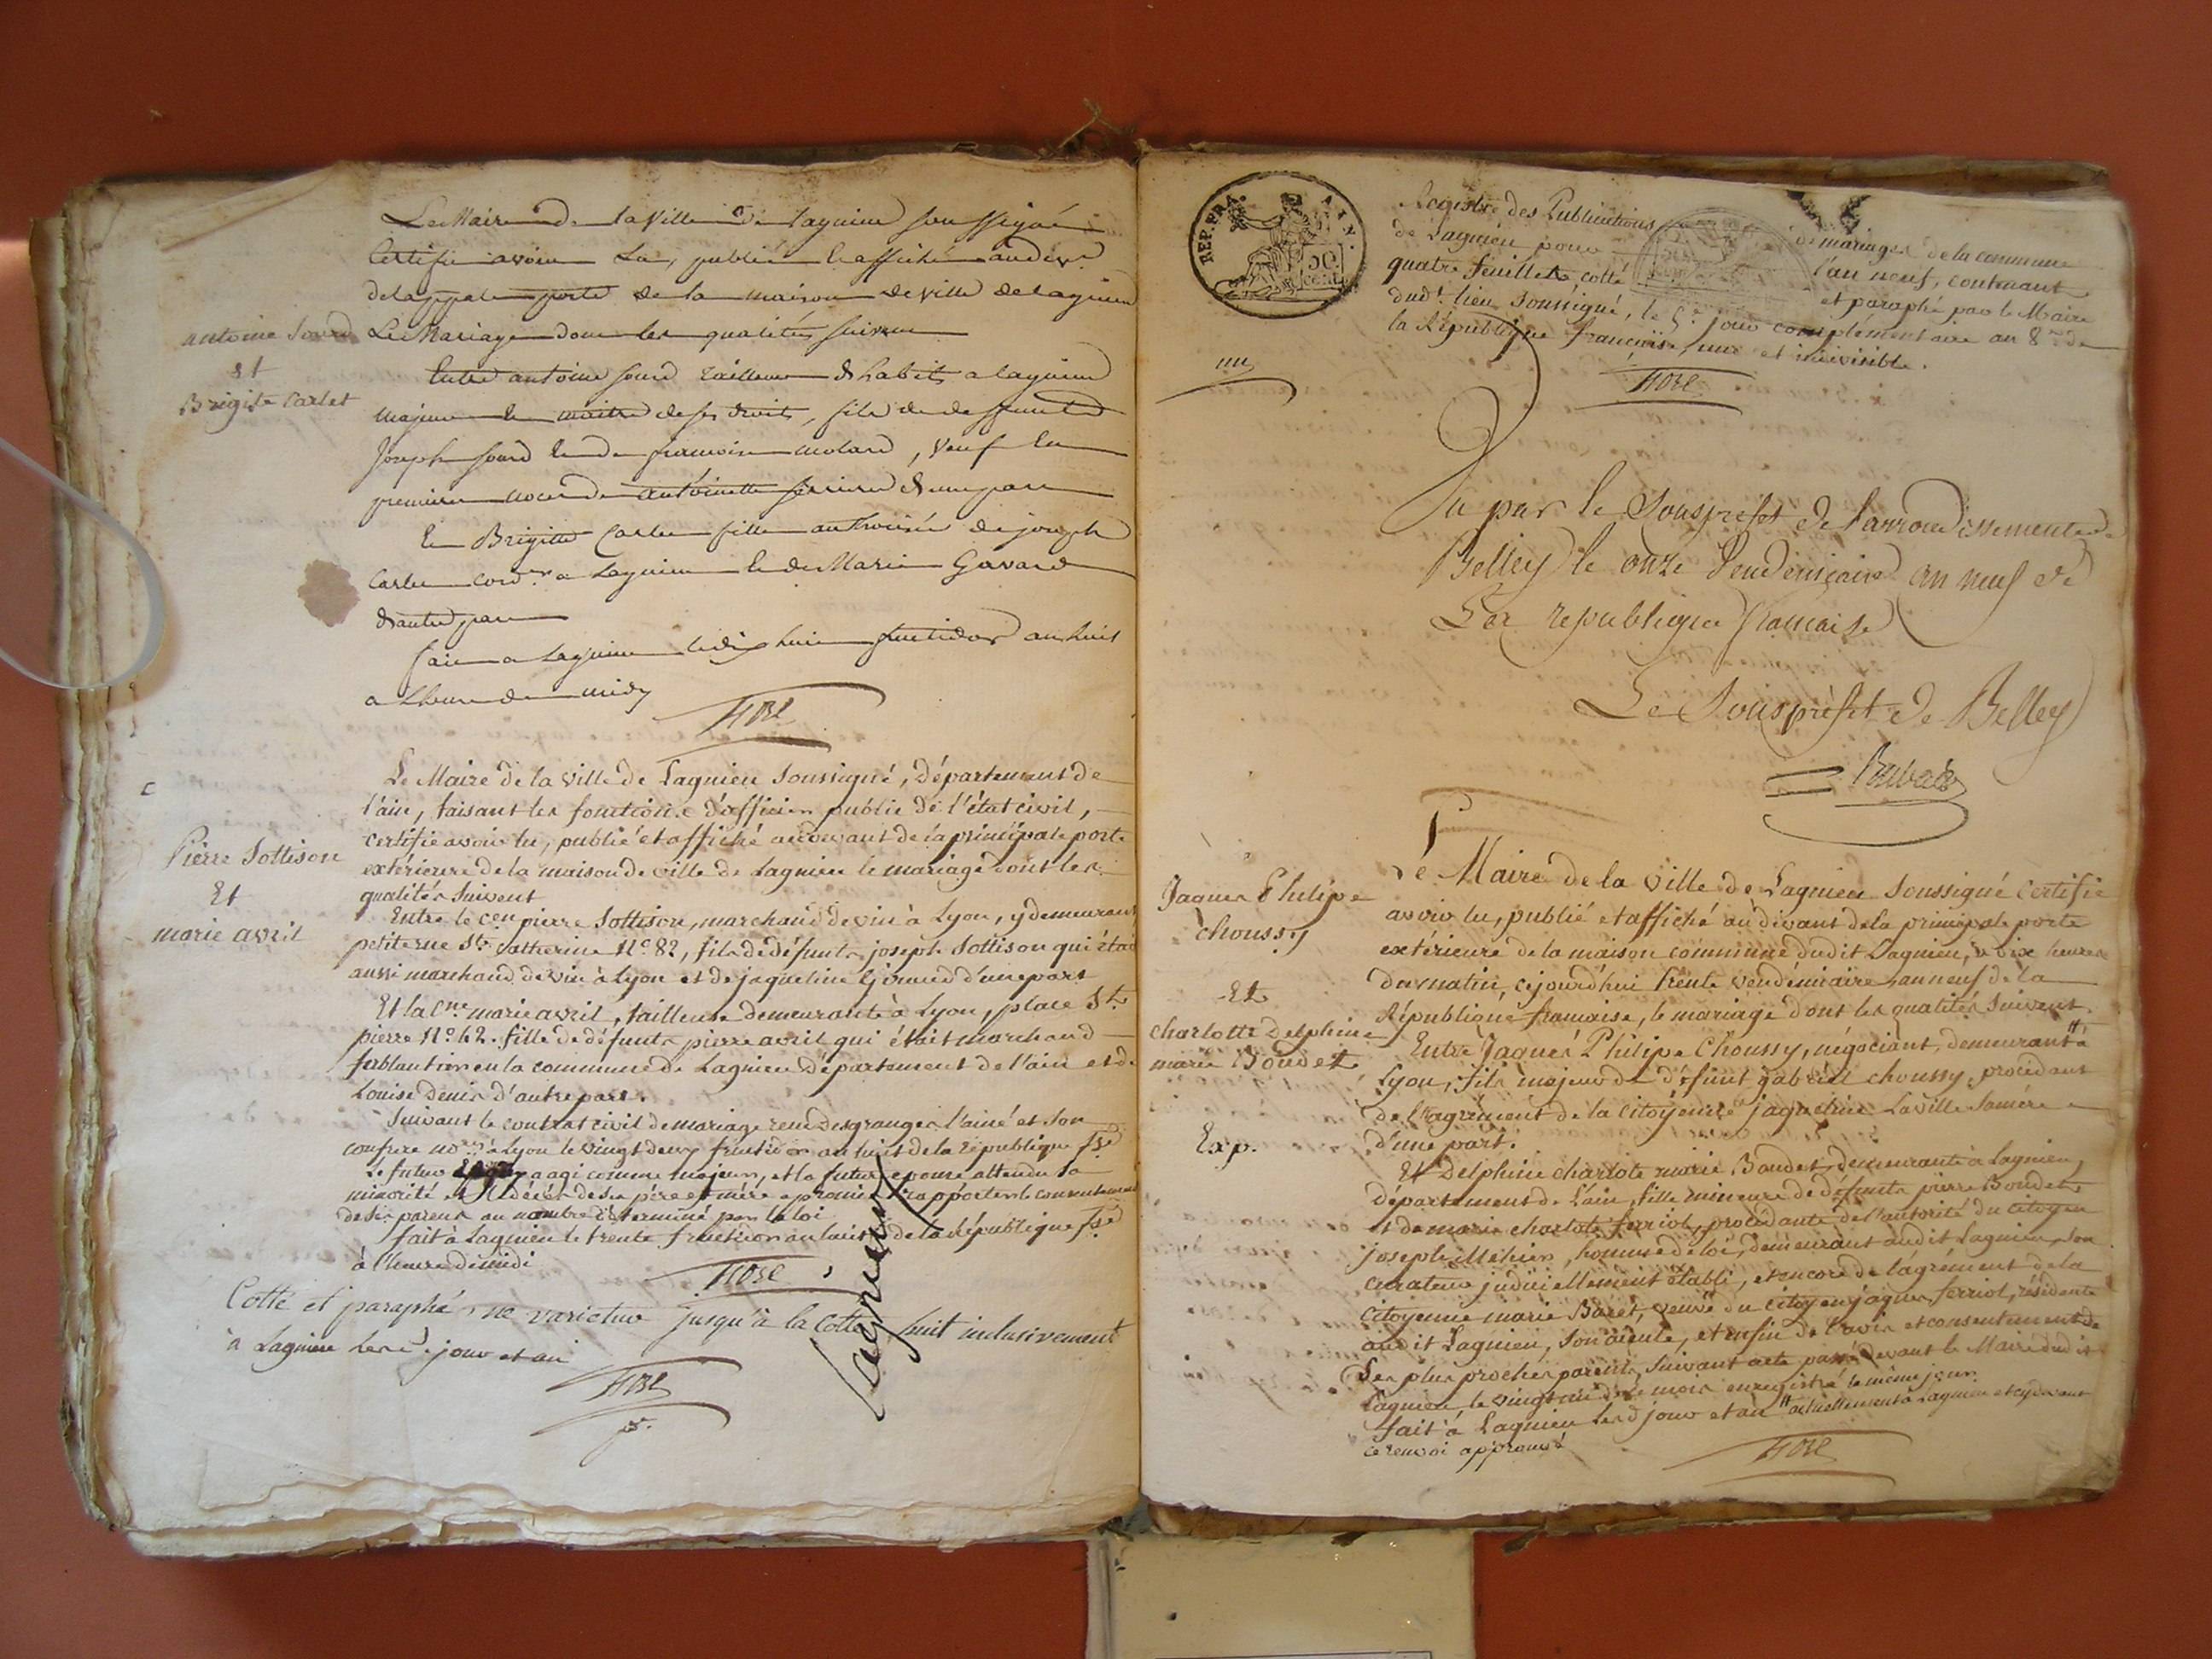 Le Maire de la Ville de lagnieu soussigné
Certifie avoir Lu, publié et affiché audev.t
de la ppale porte de la maison de ville de lagnieu
Le Mariage dont les qualités suivent
antoine sourd
et
Brigite Carlet
Entre antoine sourd tailleur d'habits a lagnieu
majeur et maitre de ses droits, fils de deffunt
Joseph sourd et de francoise molard, veuf en
premiere noces de antoinette ferriere d'une part
et Brigitte Carlet fille authorisée de joseph
Carlet cord.er a Lagnieu et de Marie Gavard
d'autre part
fait a Lagnieu le dix huit fructidor an huit
a L'heure de midy
Le Maire de la ville de Lagnieu soussigné, département de
l'ain, faisant les fonctions d'officier public de l'état civil,
certifie avoir lu, publié et affiché au devant de la principale porte
extérieure de la maison de ville de Lagnieu le mariage dont les
qualités suivent
Pierre Sottison
Et
marie avril
Entre le cen pierre Sottison, marchand de vin à Lyon, y demeurant
petite rue Ste Catherine N.o 82, fils de défunts joseph Sottison qui étoit
aussi marchand de vin à Lyon et de jaqueline Giraud d'une part
Et la Cne marie avril, tailleuse demeurante à Lyon, place St
pierre N.o 62. fille de défunts pierre avril qui était marchand
ferblantier en la commune de Lagnieu département de l'ain et de
Louise denis d'autre part.
Suivant le contrat civil de mariage reçu desgranges l'ainé et son
confrere no.res à Lyon le vingt deux fructidor an huit de la république fse
Le futur a agi comme majeur, et la future epouse attendu sa
minorité et le décés de ses père et mère a promis rapporter le consentement
de ses parens au nombre déterminé par la loi
fait à Lagnieu le trente fructidor an huit de la république fse
à l'heure de midi
Cotté et paraphé ne varietur jusqu'à la Cotte huit inclusivement
à Lagnieu les d. jour et an
REP. FRA.
AIN.
Registre des Publications de mariages de la commune
de Lagnieu pour l'an neuf, contenant
quatre feuillets cotté et paraphé par le Maire
dud.t lieu soussigné, le 5.e jour complémentaire an 8.me de
la République française, une et indivisible.
Vu par le Sousprefet de l'arrondissement de
Belley le onze Vendemiaire an neuf de
La republique francaise
Le Sousprefet de Belley
Le Maire de la ville de Lagnieu soussigné certifie
avoir lu, publié et affiché au devant de la principale porte
extérieure de la maison commune dudit Lagnieu, à dix heures
du matin, cejourd'hui trente vendémiaire an neuf de la
République francaise, le mariage dont les qualités suivent.
Jaques Philipe
Choussy
Et
Charlotte Delphine
marie Boudet
Exp.
Entre Jaques Philipe Choussy, négociant, demeurant # à
Lyon, fils majeur de défunt gabriel choussy, procédant
de l'agrément de la citoyenne jaqueline Laville sa mère
d'une part.
Et Delphine charlote marie Boudet demeurante à Lagnieu,
département de l'ain, fille mineure de défunts pierre Boudet
et de marie charlote ferriot, procédante de l'autorité du citoyen
joseph Méhier, homme de loi, demeurant audit Lagnieu, son
curateur judiciellement établi, et encore de l'agrément de la
citoyenne marie Baret, veuve du citoyen jaques ferriot, résidente
audit Lagnieu, son aieule, et enfin de l'avis et consentement de
Ses plus proches parents, suivant acte passé devant le Maire dudit
Lagnieu le vingt un de ce mois enregistré le même jour.
fait à Lagnieu les d. jour et an # actuellement à Lagnieu et cy devant
ce renvoi approuvé